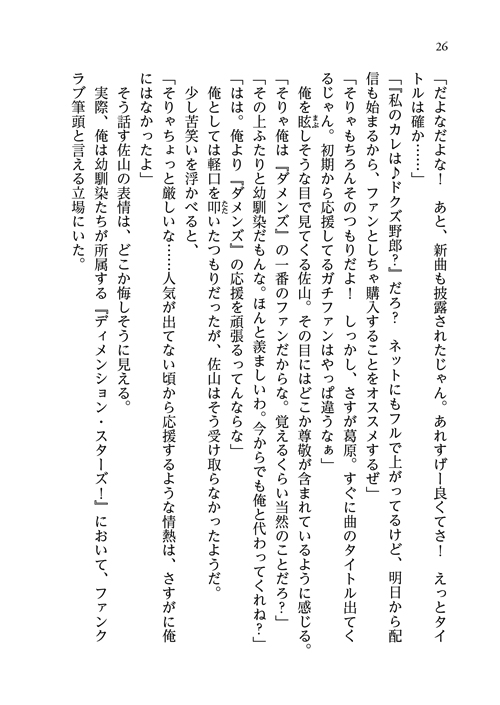 26
「だよなだよな！　あと、新曲も披露されたじゃん。あれすげー良くてさ！　えっとタイ
トルは確か……」
「『私のカレは♪ドクズ野郎？』だろ？　ネットにもフルで上がってるけど、明日から配
信も始まるから、ファンとしちゃ購入することをオススメするぜ」
「そりゃもちろんそのつもりだよ！　しっかし、さすが葛原。すぐに曲のタイトル出てく
るじゃん。初期から応援してるガチファンはやっぱ違うなぁ」
俺を眩しそうな目で見てくる佐山。その目にはどこか尊敬が含まれているように感じる。
まぶ
「そりゃ俺は『ダメンズ』の一番のファンだからな。覚えるくらい当然のことだろ？」
「その上ふたりと幼馴染だもんな。ほんと羨ましいわ。今からでも俺と代わってくれね？」
「はは。俺より『ダメンズ』の応援を頑張るってんならな」
俺としては軽口を叩いたつもりだったが、佐山はそう受け取らなかったようだ。
たた
少し苦笑いを浮かべると、
「そりゃちょっと厳しいな……人気が出てない頃から応援するような情熱は、さすがに俺
にはなかったよ」
そう話す佐山の表情は、どこか悔しそうに見える。
実際、俺は幼馴染たちが所属する『ディメンション・スターズ！』において、ファンク
ラブ筆頭と言える立場にいた。